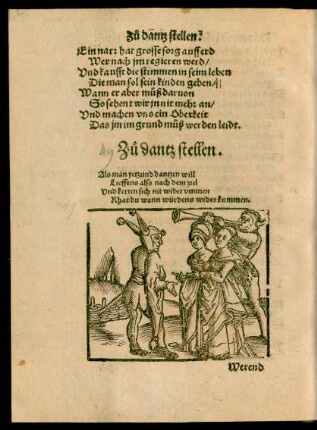 Zů dantz stellen?
Ein narr hat grosse sorg auff erd
Wer nach jm regieren werd/
Vnd kaufft die stimmen in seim leben
Die man sol sein kinden geben/
Wann er aber můß daruon
So sehent wir jnn it mehr an/
Vnd machen vns ein Oberkeit
Das jm im grund můß werden leidt.
Zů dantz stellen.
Als man yetzund dantzen will
Lieffens also nach dem ziel
Vnd kerten sich nit wider vmmen
Wann würdens wider kummen.
Werend